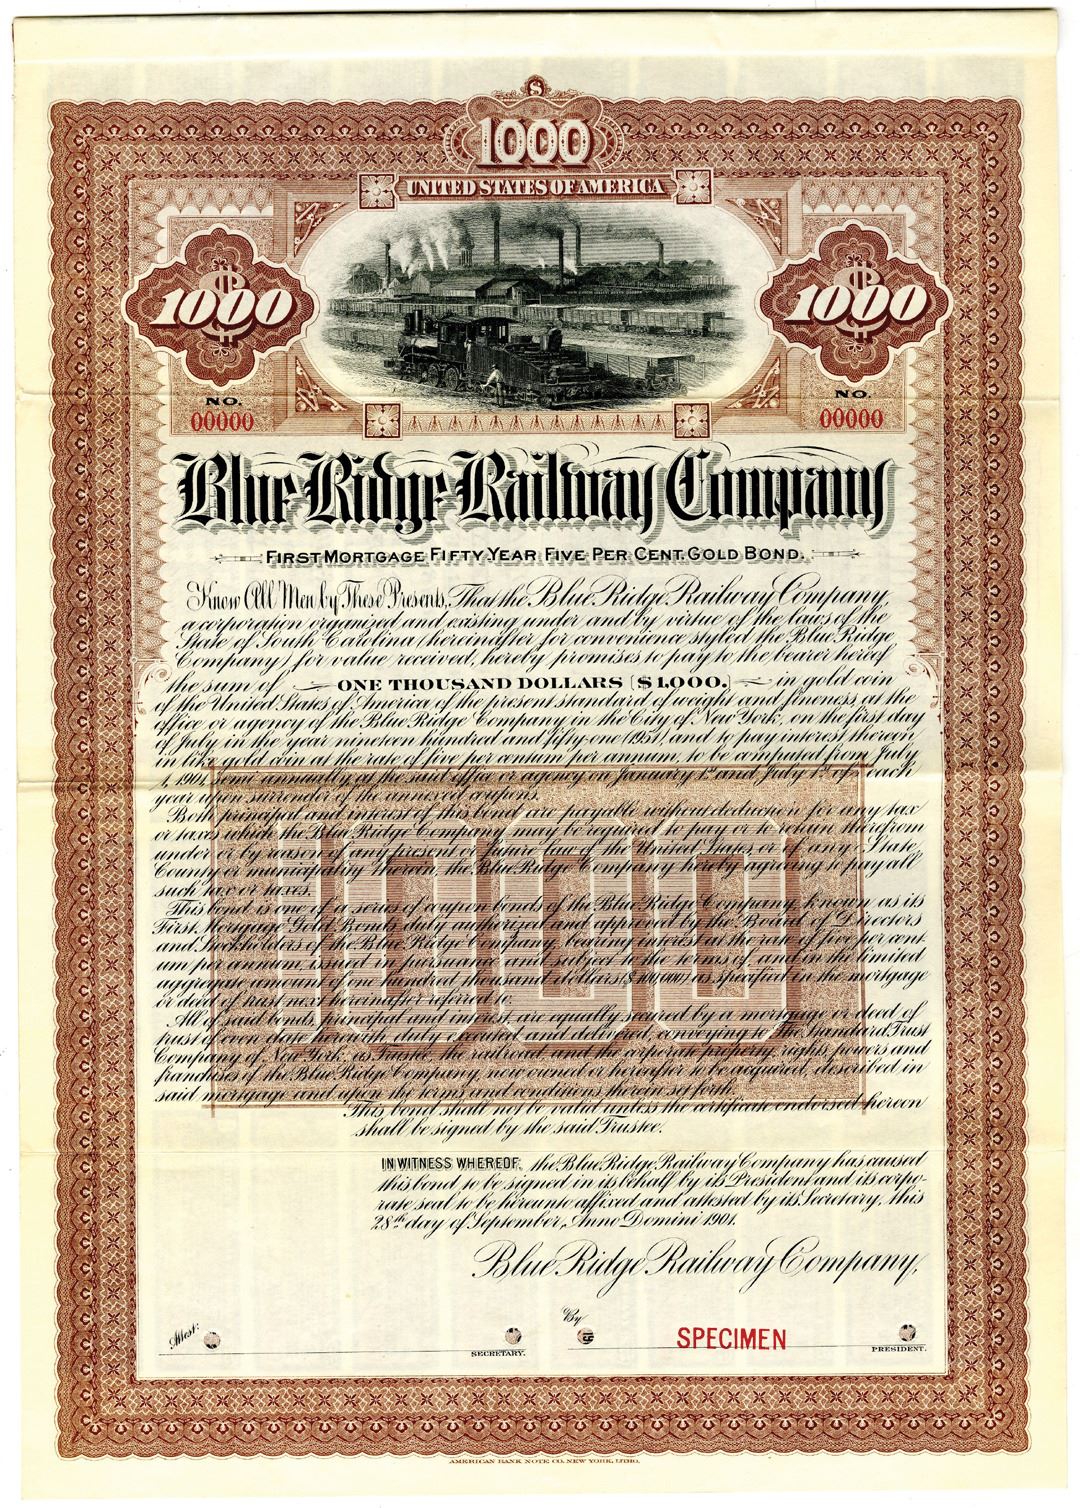 $
1000
UNITED STATES OF AMERICA
1000
1000
NO.
00000
NO.
00000
Blue Ridge Railway Company
FIRST MORTGAGE FIFTY YEAR FIVE PER CENT. GOLD BOND.
Know All Men by These Presents, That the Blue Ridge Railway Company,
a corporation organized and existing under and by virtue of the laws of the
State of South Carolina (hereinafter for convenience styled the Blue Ridge
Company) for value received, hereby promises to pay to the bearer hereof
the sum of ONE THOUSAND DOLLARS [$1,000.] in gold coin
of the United States of America of the present standard of weight and fineness, at the
office or agency of the Blue Ridge Company in the City of New York, on the first day
of July in the year nineteen hundred and fifty-one (1951), and to pay interest thereon
in like gold coin at the rate of five per centum per annum, to be computed from July
1, 1901, semi-annually, at the said office or agency on January 1st and July 1st of each
year upon surrender of the annexed coupons.
Both principal and interest of this bond are payable without deduction for any tax
or taxes which the Blue Ridge Company may be required to pay or to retain therefrom
under or by reason of any present or future law of the United States, or of any State,
County or municipality therein, the Blue Ridge Company hereby agreeing to pay all
such tax or taxes.
This bond is one of a series of coupon bonds of the Blue Ridge Company, known as its
First Mortgage Gold Bonds duly authorized and approved by the Board of Directors
and Stockholders of the Blue Ridge Company, bearing interest at the rate of five per cent-
um per annum, issued in pursuance and subject to the terms of, and in the limited
aggregate amount of one hundred thousand dollars ($100,000) as specified in the mortgage
or deed of trust next hereinafter referred to.
All of said bonds, principal and interest, are equally secured by a mortgage or deed of
trust of even date herewith, duly executed and delivered, conveying to The Standard Trust
Company of New York, as Trustee, the railroad and the corporate property, rights, powers and
franchises of the Blue Ridge Company, now owned or hereafter to be acquired, described in
said mortgage and upon the terms and conditions therein set forth.
This bond shall not be valid unless the certificate endorsed hereon
shall be signed by the said Trustee.
1000
IN WITNESS WHEREOF, the Blue Ridge Railway Company has caused
this bond to be signed in its behalf by its President and its corpo-
rate seal to be hereunto affixed and attested by its Secretary, this
28th day of September, Anno Domini 1901.
Blue Ridge Railway Company,
Attest:
SECRETARY.
By
SPECIMEN
PRESIDENT.
AMERICAN BANK NOTE CO. NEW YORK, LITHO.